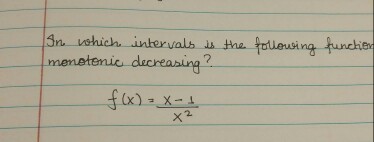 In which intervals is the following function
monotonic decreasing?
f(x) = x - 1
x²